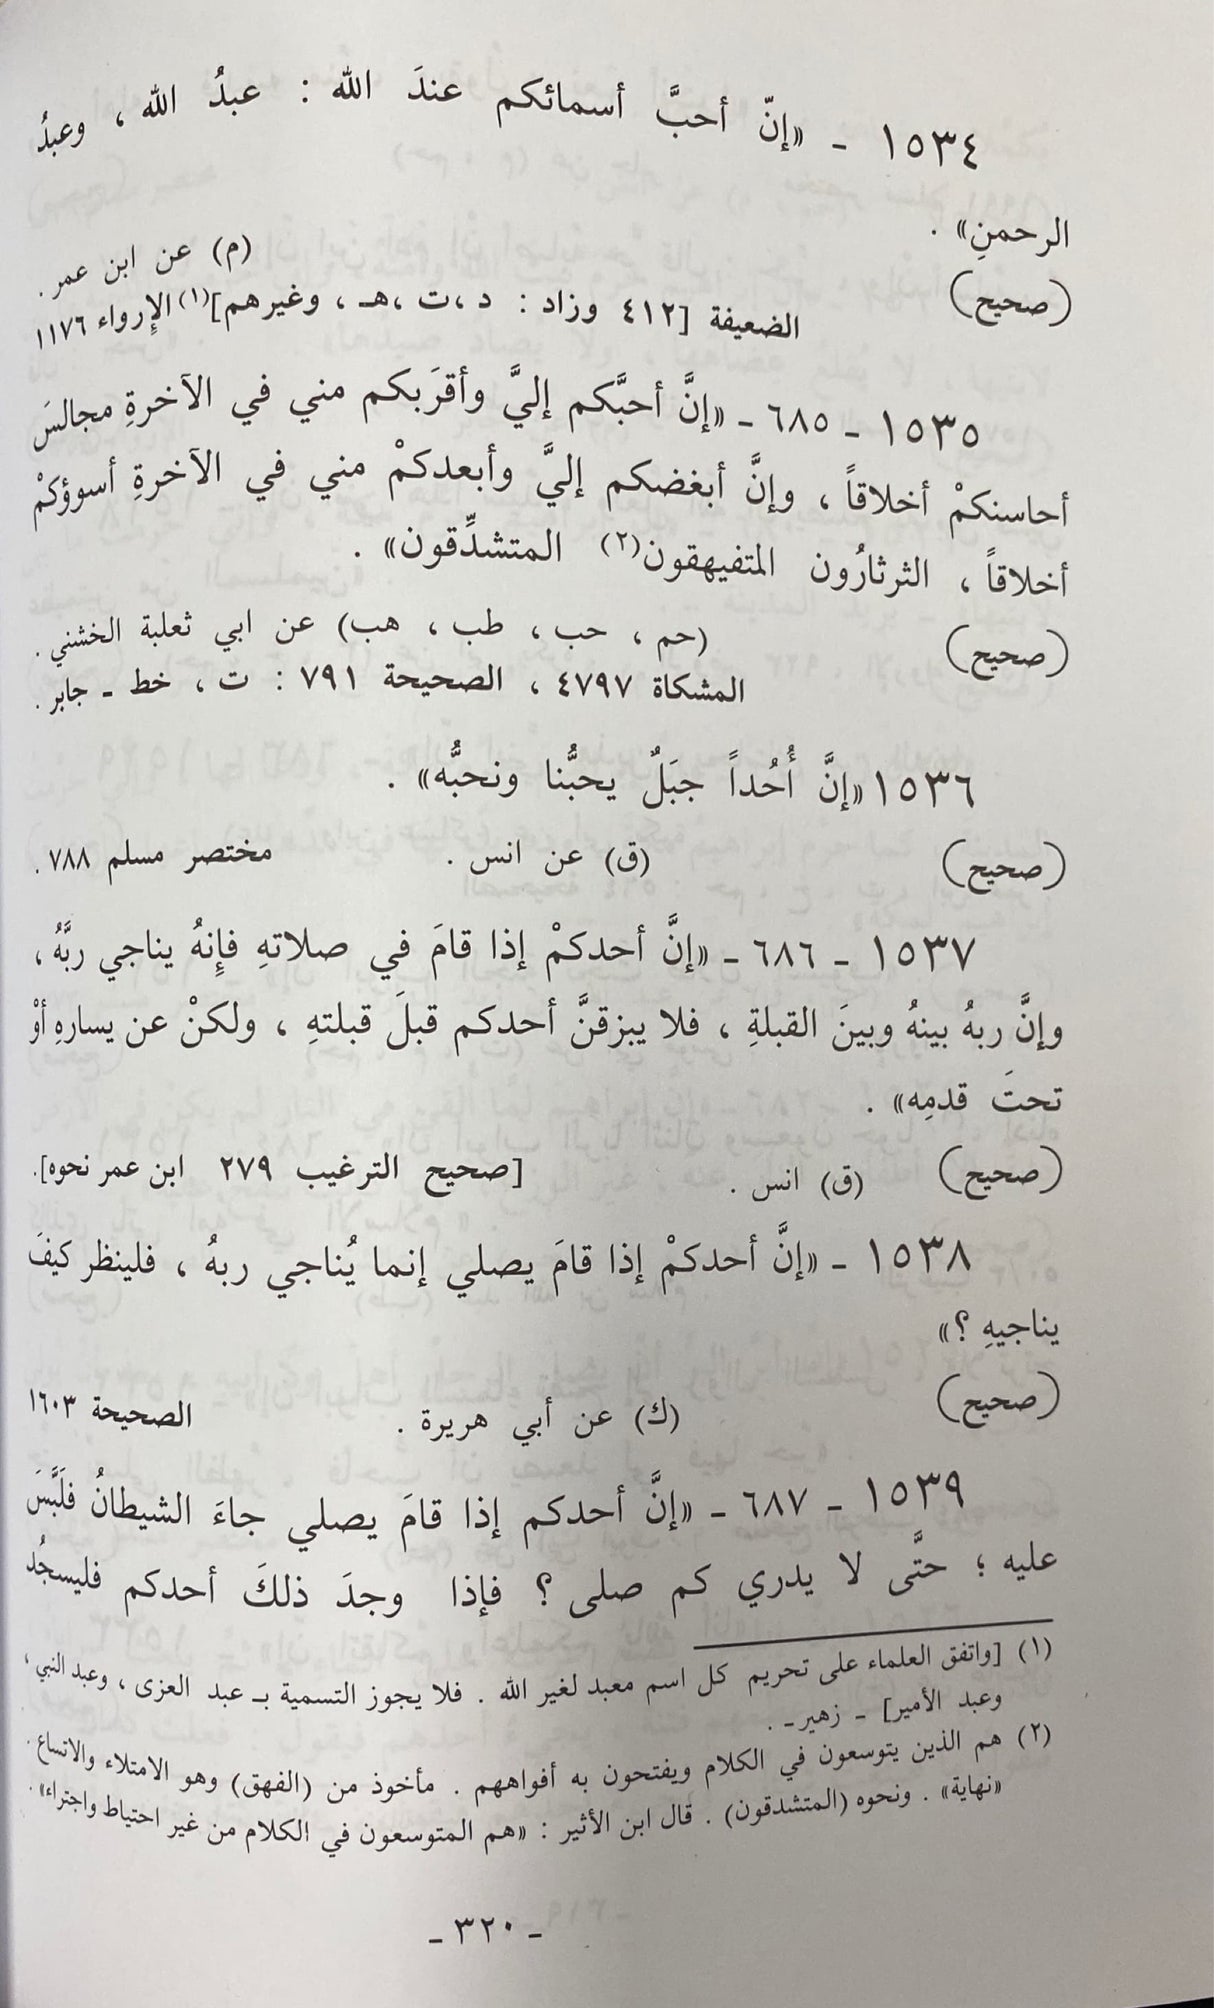 ١٥٣٤ - «إنّ أحبَّ أسمائكم عندَ الله : عبدُ الله ، وعبدُ
الرحمنِ» .
(صحيح) (م) عن ابن عمر .
الضعيفة [٤١٢ وزاد : د ،ت ،هـ ، وغيرهم](١) الإرواء ١١٧٦
١٥٣٥ - ٦٨٥ - «إنَّ أحبَّكم إليَّ وأقرَبكم مني في الآخرةِ مجالسَ
أحاسنكمْ أخلاقاً ، وإنَّ أبغضكم إليَّ وأبعدكمْ مني في الآخرةِ أسوؤكمْ
أخلاقاً ، الثرثارُون المتفيهقون(٢) المتشدِّقون» .
(صحيح) (حم ، حب ، طب ، هب) عن ابي ثعلبة الخشني .
المشكاة ٤٧٩٧ ، الصحيحة ٧٩١ : ت ، خط - جابر .
١٥٣٦ «إنَّ أُحُداً جبَلٌ يحبُّنا ونحبُّه» .
(صحيح) (ق) عن انس . مختصر مسلم ٧٨٨ .
١٥٣٧ - ٦٨٦ - «إنَّ أحدكمْ إذا قامَ في صلاتهِ فإنهُ يناجي ربَّهُ ،
وإنَّ ربهُ بينهُ وبينَ القبلةِ ، فلا يبزقنَّ أحدكم قبلَ قبلتهِ ، ولكنْ عن يسارهِ أوْ
تحتَ قدمِه» .
(صحيح) (ق) انس . [صحيح الترغيب ٢٧٩ ابن عمر نحوه].
١٥٣٨ - «إنَّ أحدكمْ إذا قامَ يصلي إنما يُناجي ربهُ ، فلينظر كيفَ
يناجيهِ ؟»
(صحيح) (ك) عن أبي هريرة . الصحيحة ١٦٠٣
١٥٣٩ - ٦٨٧ - «إنَّ أحدكم إذا قامَ يصلي جاءَ الشيطانُ فلَبَّسَ
عليه ؛ حتَّى لا يدري كم صلى ؟ فإذا وجدَ ذلكَ أحدكم فليسجُد
(١) [واتفق العلماء على تحريم كل اسم معبد لغير الله . فلا يجوز التسمية بـ عبد العزى ، وعبد النبي ،
وعبد الأمير] - زهير- .
(٢) هم الذين يتوسعون في الكلام ويفتحون به أفواههم . مأخوذ من (الفهق) وهو الامتلاء والاتساع .
«نهاية» . ونحوه (المتشدقون) . قال ابن الأثير : «هم المتوسعون في الكلام من غير احتياط واجتراء» .
- ٣٢٠ -